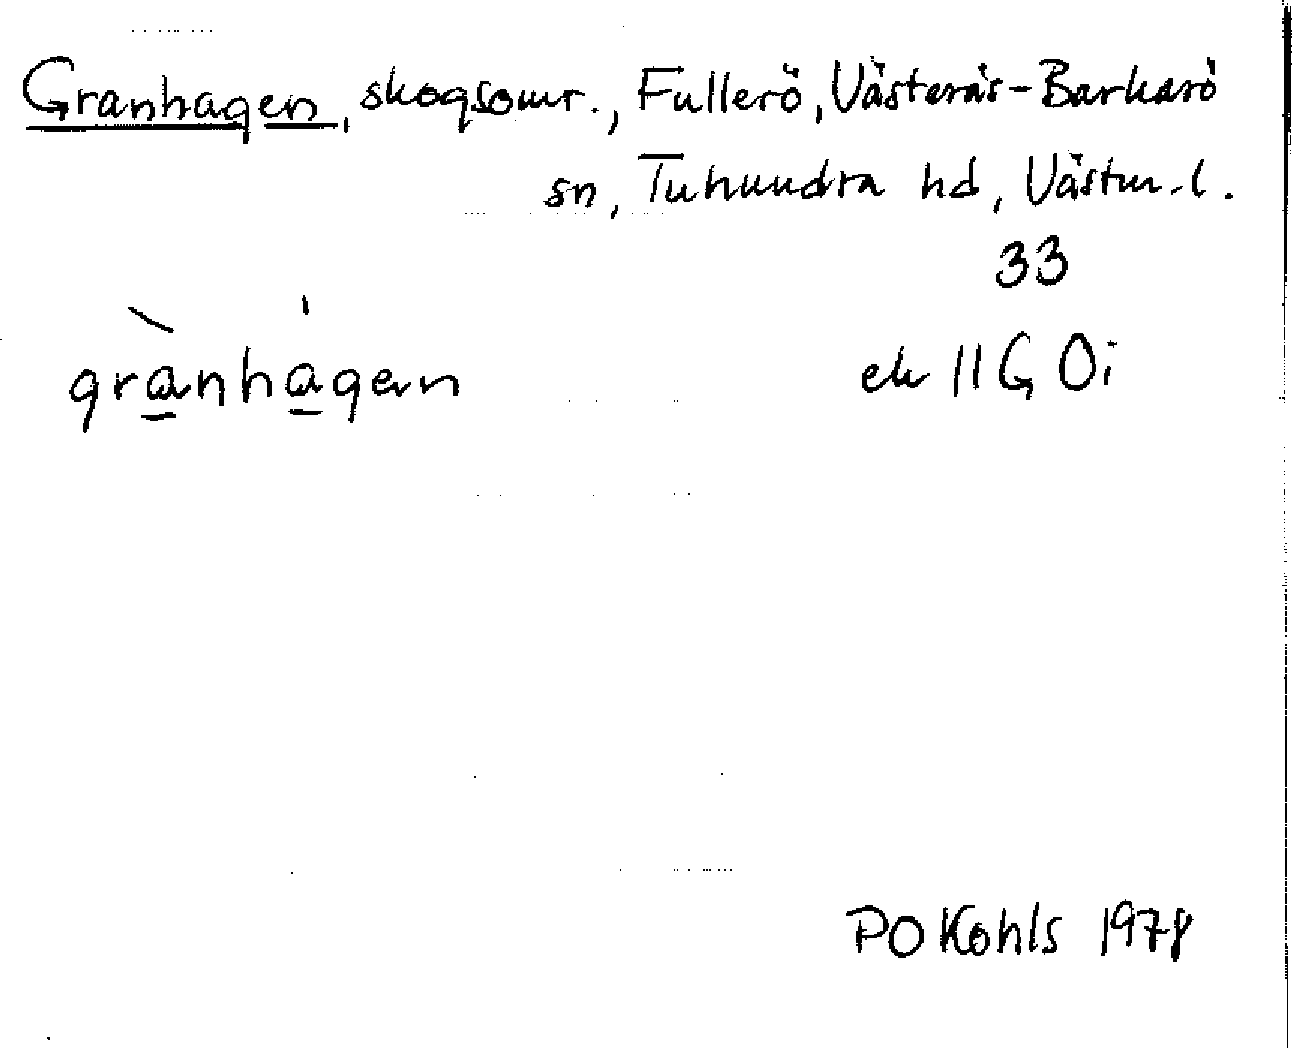 Granhagen, skogsomr., Fullerö, Västerås-Barkarö
sn, Tuhundra hd, Västm.l.
33
grànhágen
ek 11G 0i
PO Kohls 1978